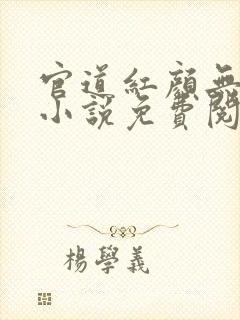 官道紅顏無
小說免費閱
楊學義